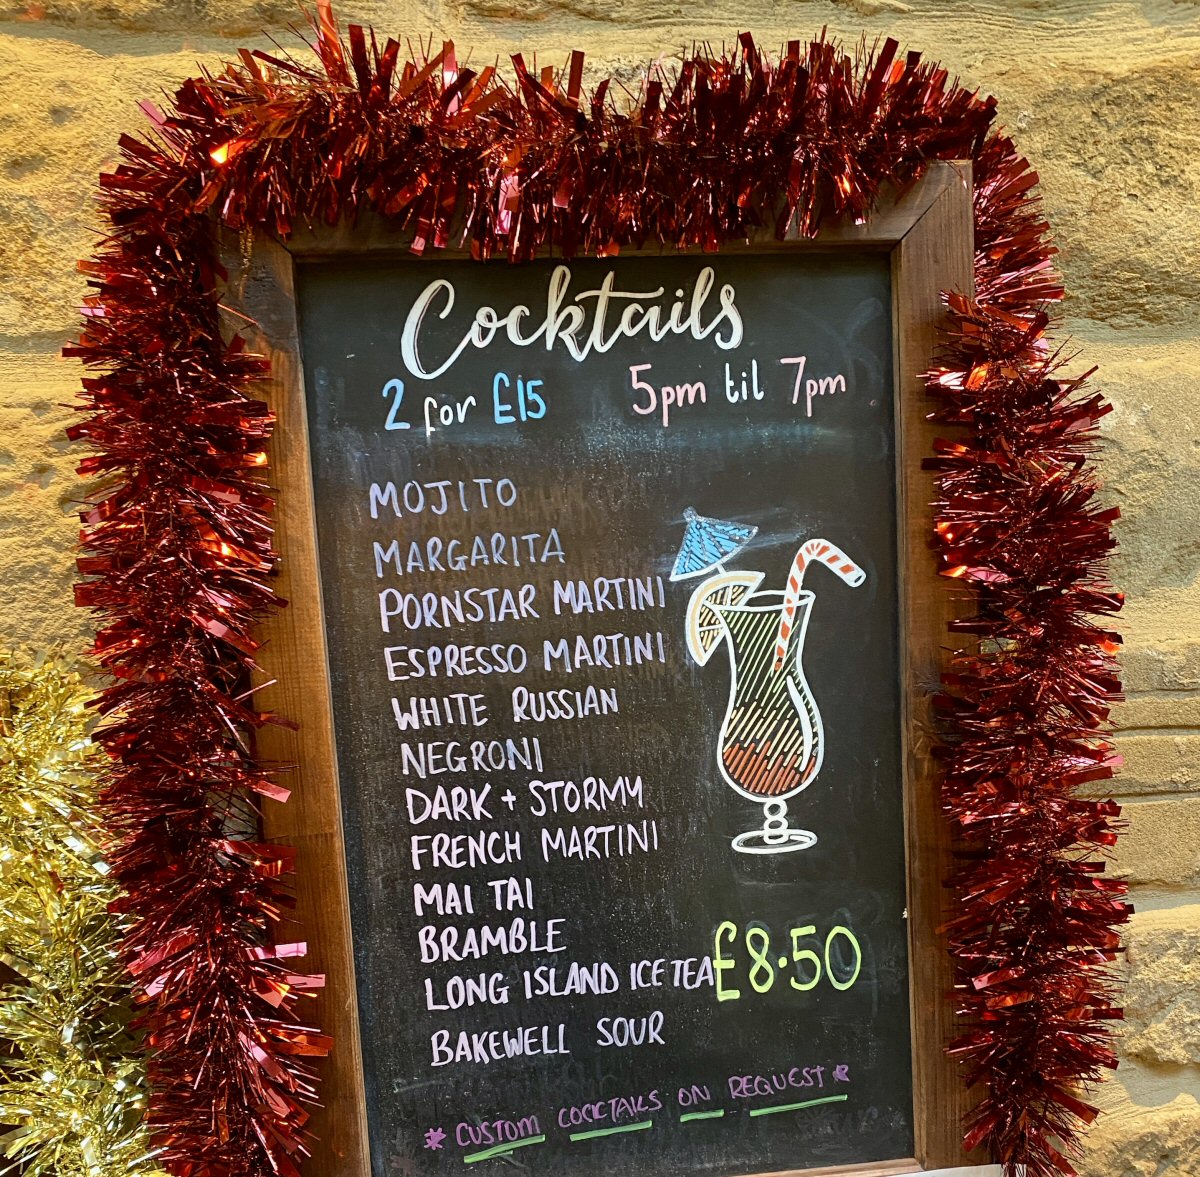 Cocktails
2 for £15 5pm til 7pm
MOJITO
MARGARITA
PORNSTAR MARTINI
ESPRESSO MARTINI
WHITE RUSSIAN
NEGRONI
DARK + STORMY
FRENCH MARTINI
MAI TAI
BRAMBLE
LONG ISLAND ICE TEA £8.50
BAKEWELL SOUR
* CUSTOM COCKTAILS ON REQUEST *